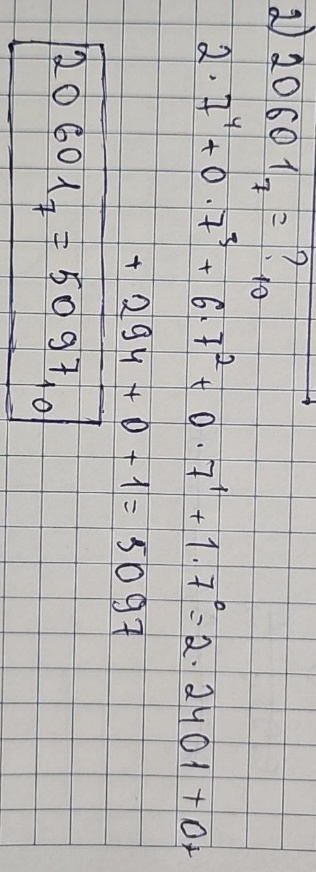 2) 20601₇ = ?₁₀
2·7⁴ + 0·7³ + 6·7² + 0·7¹ + 1·7⁰ = 2·2401 + 0+
+ 294 + 0 + 1 = 5097
20601₇ = 5097₁₀